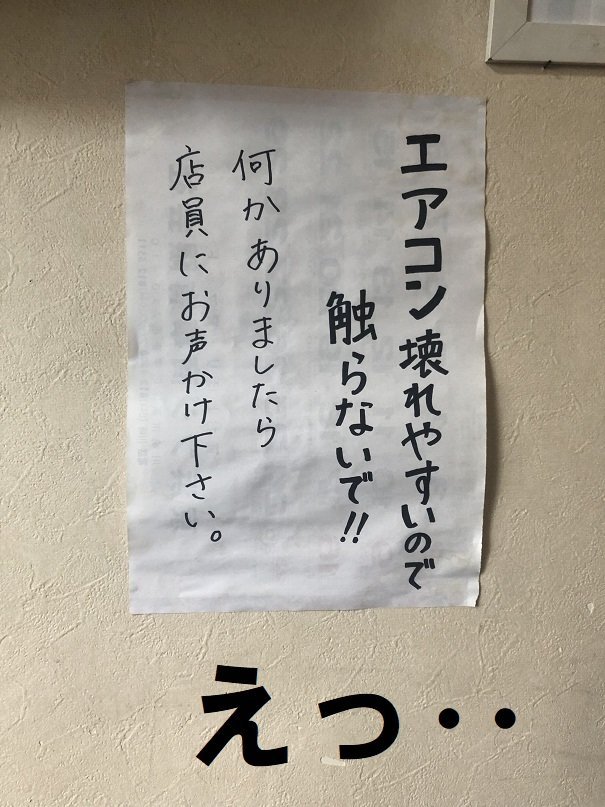 エアコン壊れやすいので
触らないで!!
何かありましたら
店員にお声かけ下さい。
えっ・・